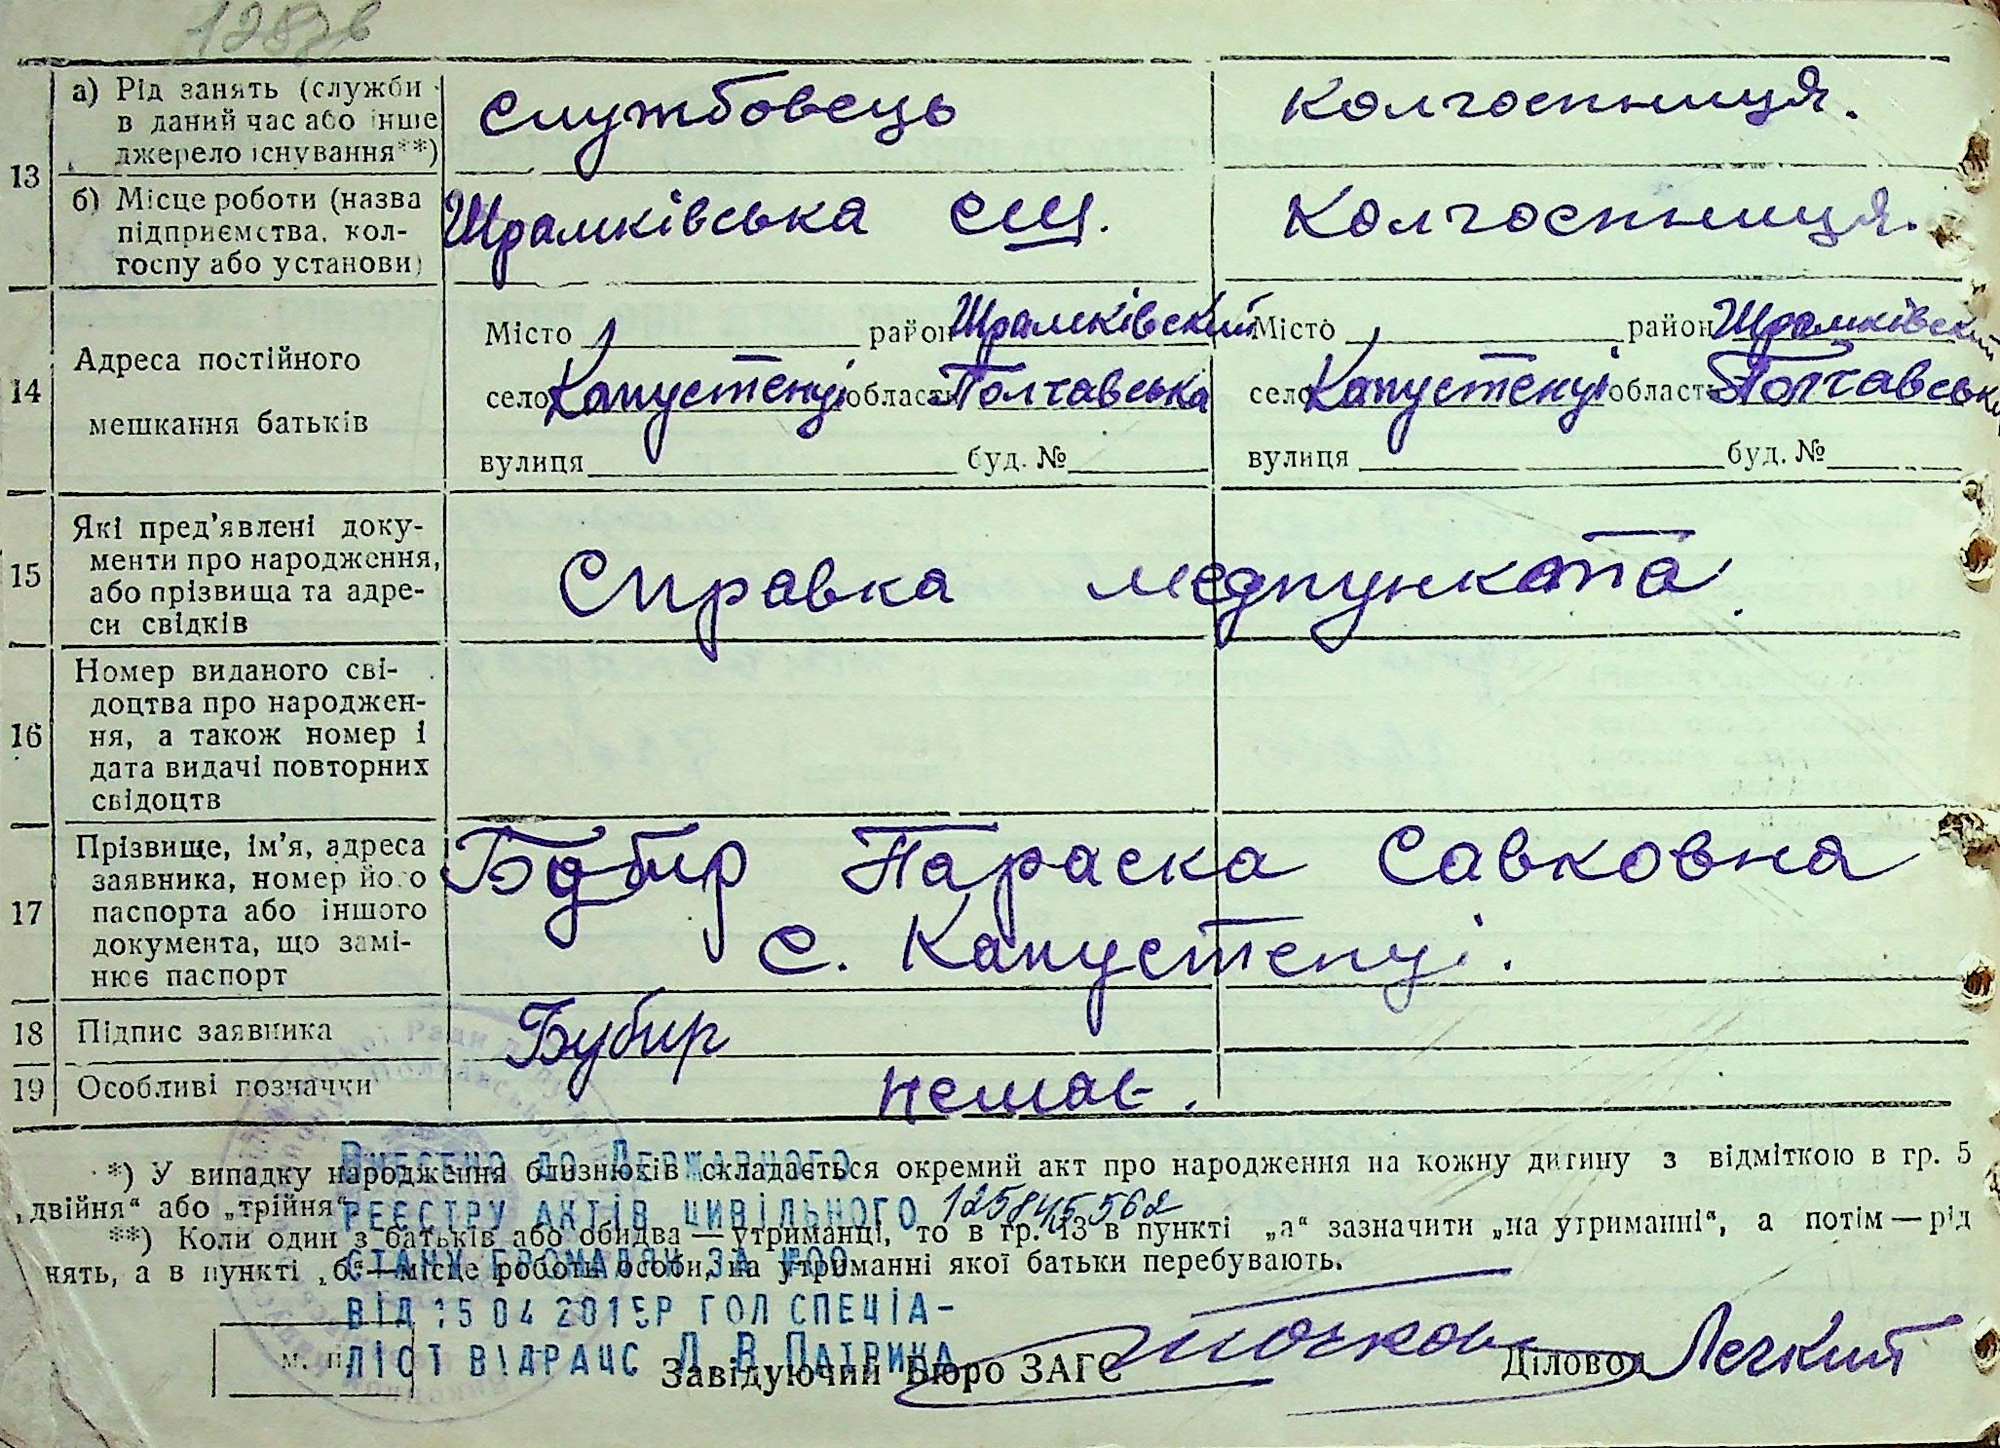 13
а) Рід занять (служби в даний час або інше джерело існування**)
службовець
колгоспниця.
б) Місце роботи (назва підприємства, колгоспу або установи)
Шрамківська СШ.
колгоспниця.
14
Адреса постійного мешкання батьків
Місто район Шрамківский
село Капустенці область Полтавська
вулиця буд. №
Місто район Шрамківский
село Капустенці область Полтавська
вулиця буд. №
15
Які пред'явлені документи про народження, або прізвища та адреси свідків
Справка медпункта.
16
Номер виданого свідоцтва про народження, а також номер і дата видачі повторних свідоцтв
17
Прізвище, ім'я, адреса заявника, номер його паспорта або іншого документа, що замінює паспорт
Параска Савковна
с. Капустенці.
18
Підпис заявника
Бубир
19
Особливі позначки
немає.
*) У випадку народження близнюків складається окремий акт про народження на кожну дитину з відміткою в гр. 5
„двійня“ або „трійня“
**) Коли один з батьків або обидва — утриманці, то в гр. 13 в пункті „а“ зазначити „на утриманні“, а потім — рід
нять, а в пункті „б“ — місце роботи особи, на утриманні якої батьки перебувають.
Внесено до Державного
реєстру актів цивільного
стану громадян за №00
від 15 04 2015р гол спеціа-
ліст вдрацс Л В Патрика
м. п.
Завідуючий Бюро ЗАГС
Діловод